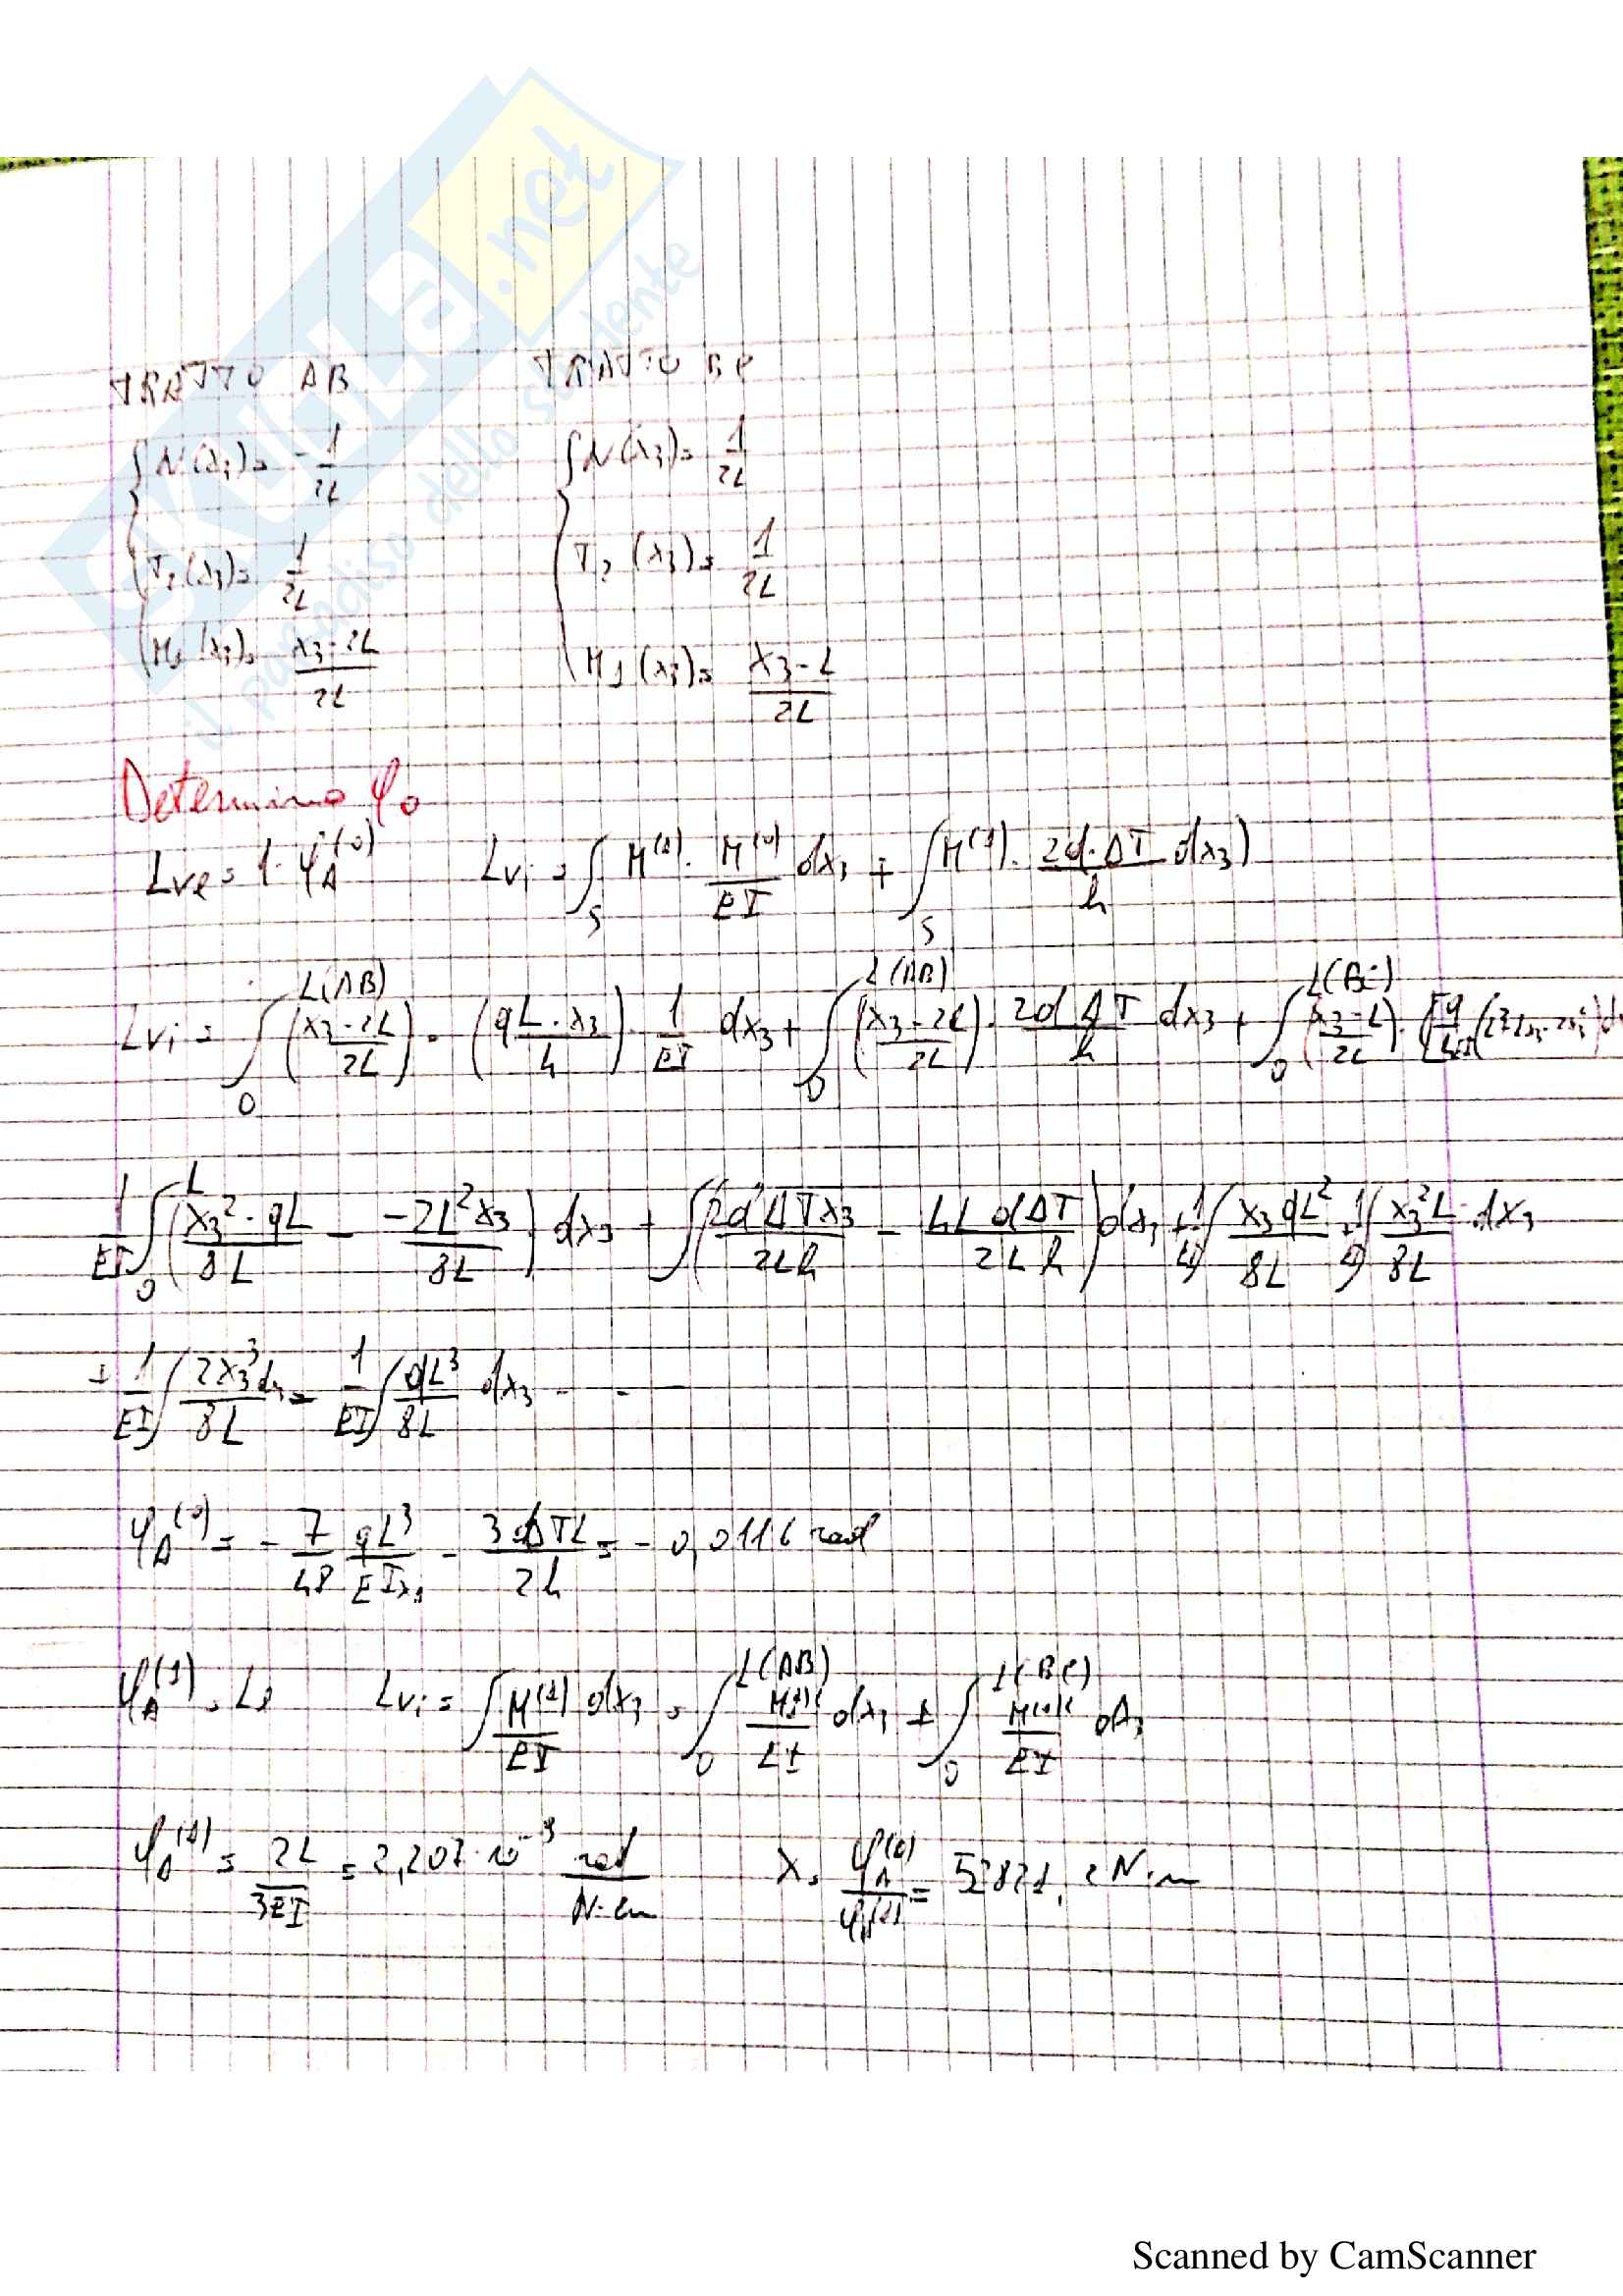 SKUOLA.net
il paradiso dello studente
TRATTO AB TRATTO BC
N(x3)= -1/2L N(x3)= 1/2L
T2(x3)= 1/2L T2(x3)= 1/2L
M1(x3)= (x3-2L)/2L M1(x3)= (x3-L)/2L
Determino φ0
Lve= 1·φA^(0) Lvi = ∫S M^(1)· M^(0)/EI dx3 + ∫S M^(1)· 2αΔT/h dx3
Lvi = ∫0^L(AB) ((x3-2L)/2L) · (qL·x3/4) · 1/EI dx3 + ∫0^L(AB) ((x3-2L)/2L) · 2αΔT/h dx3 + ∫0^L(BC) ((x3-L)/2L) ·
1/EI ∫0^L (x3²·qL/8L - -2L²x3/8L) dx3 + ∫(2αΔTx3/2Lh - 4LαΔT/2Lh) dx3 + ∫ x3qL²/8L ∫ x3²L/8L dx3
+ 1/EI ∫ 2x3³/8L dx3 = 1/EI ∫ qL³/8L dx3 - - -
φA^(0) = - 7/48 qL³/EIx1 - 3αΔTL/2h = - 0,0116 rad
φA^(1) = Le Lvi = ∫ M^(1)/EI dx3 = ∫0^L(AB) M^(1)/EI dx3 + ∫0^L(BC) M^(1)/EI dx3
φA^(1) = 2L/3EI = 2,207·10^-9 rad/N·cm X = φA^(0)/φA^(1) = 52821, 2 N·m
Scanned by CamScanner